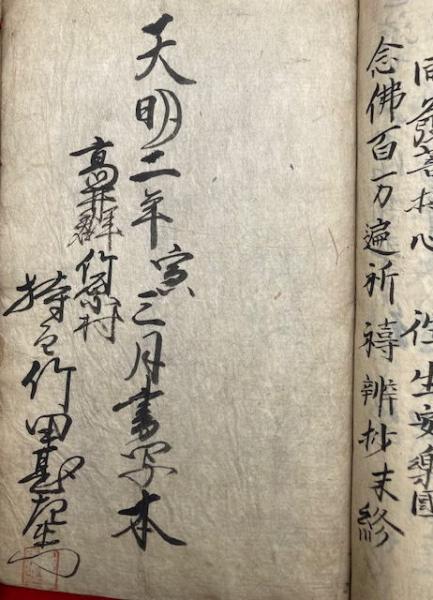 同發菩提心 往生安樂國
念佛百万遍祈禱辨抄末終
天明二年寅三月書写本
高井群竹原村
持主竹田甚